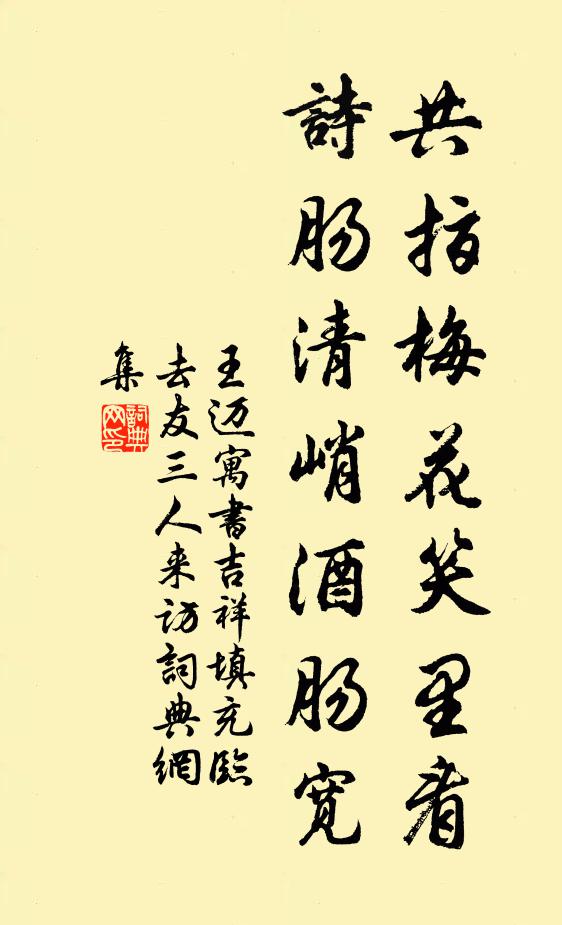 共指梅花笑里看
詩肠清峭酒肠寛
王迈寓書吉祥填充臨
去友三人来访詞典網
集
詞典
网印